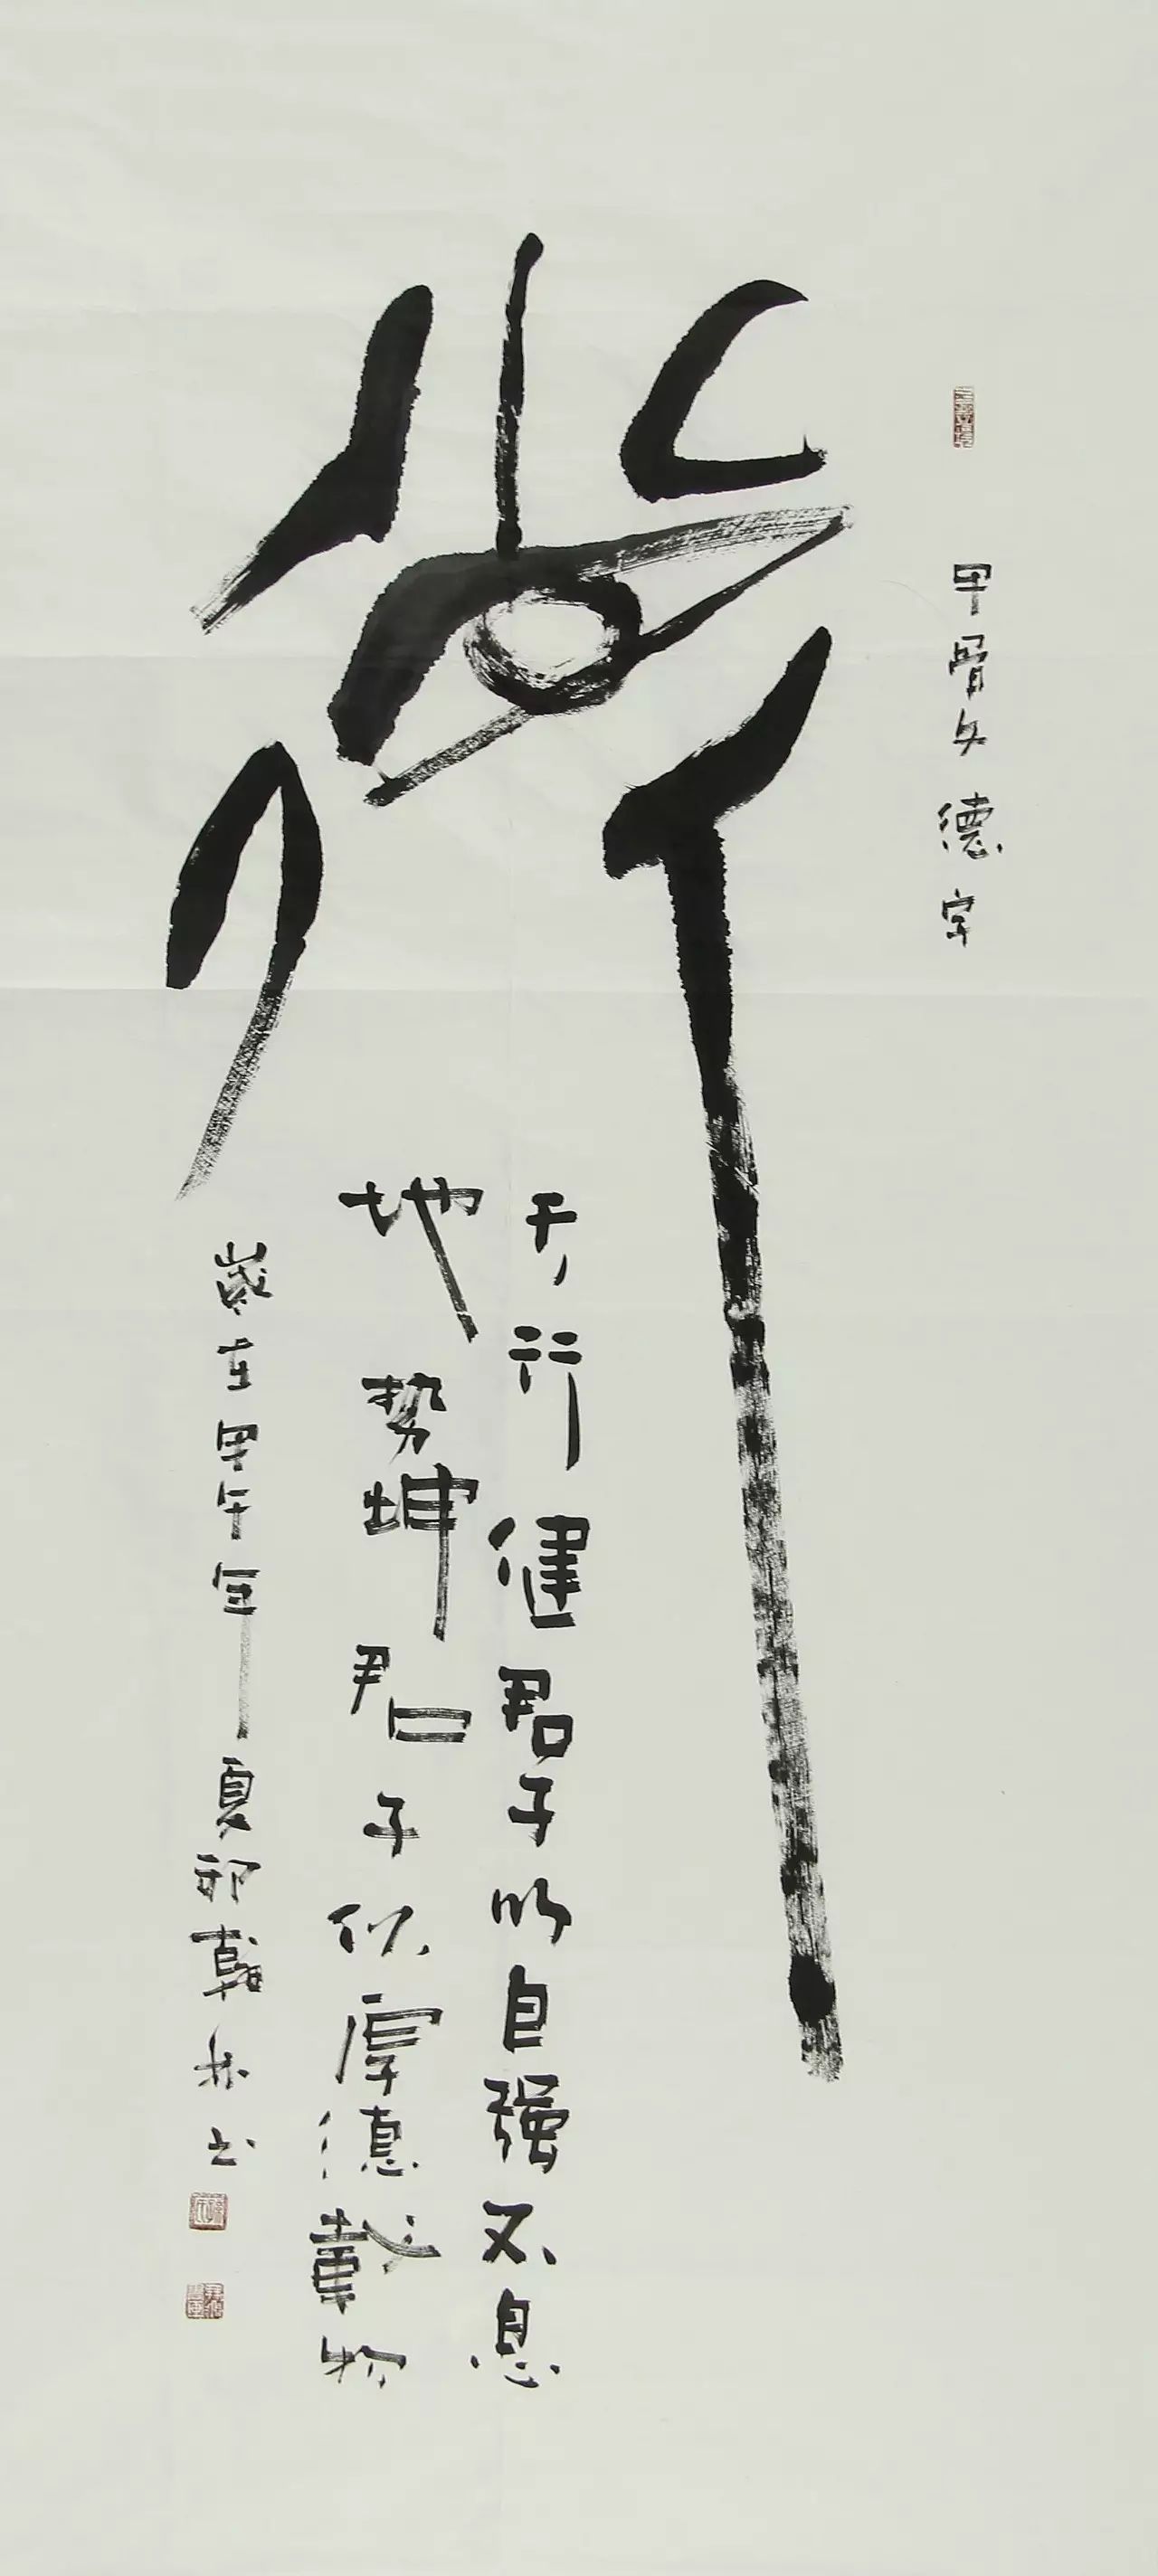 甲骨文德字
德
天行健君子以自强不息
地势坤君子以厚德載物
歲在甲午年夏林书